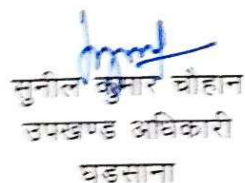 सुनील कुमार चौहान
उपखण्ड अधिकारी
घडसाना